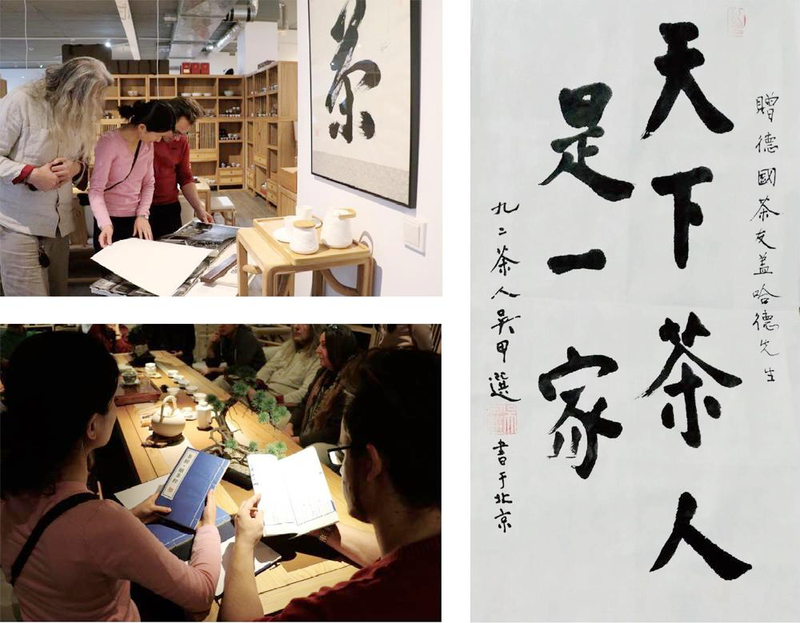 茶
贈德國茶友盖哈德先生
天下茶人
是一家
九二茶人吳甲選
書于北京